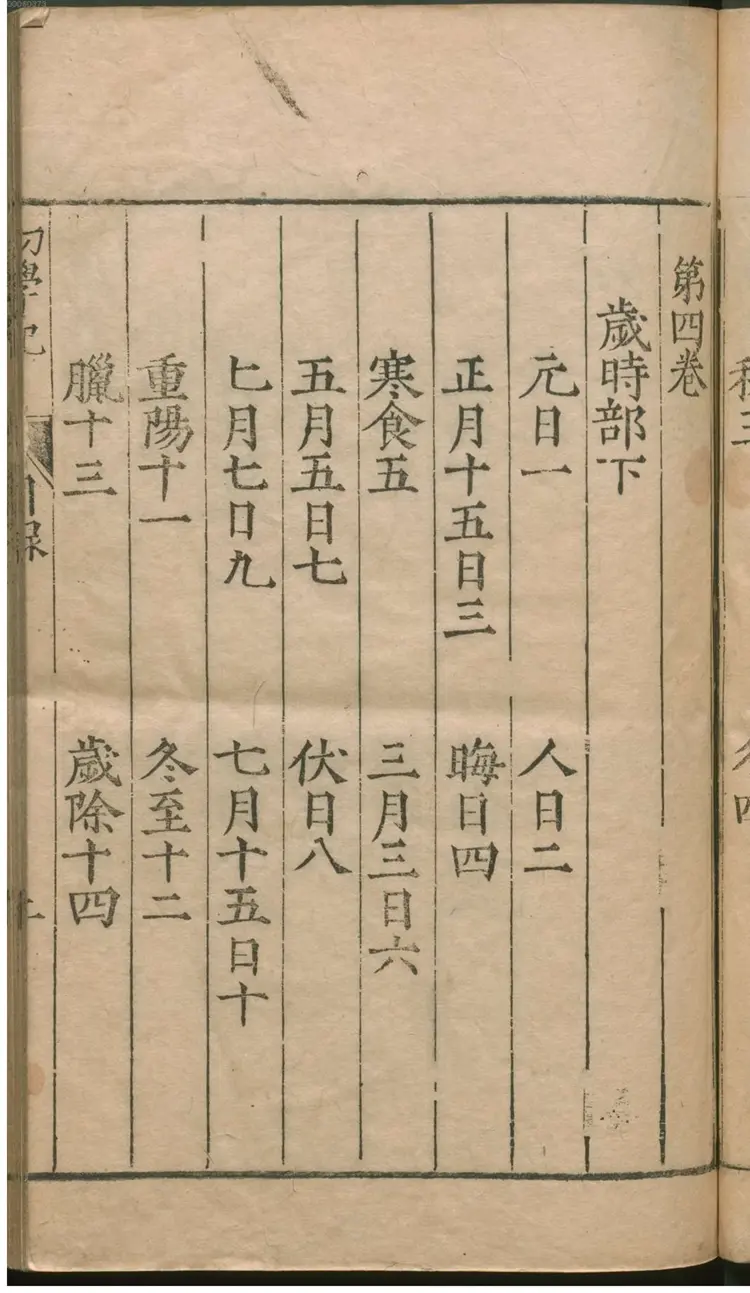 第四卷
歲時部下
元日一 人日二
正月十五日三 晦日四
寒食五 三月三日六
五月五日七 伏日八
七月七日九 七月十五日十
重陽十一 冬至十二
臘十三 歲除十四